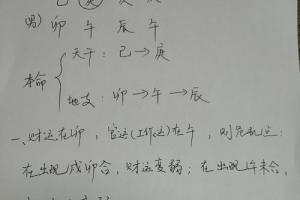 男) 卯 午 辰 午
天干：己→庚
本命
地支：卯→午→辰
一、财运在卯，官运(工作运)在午，则危机
在出现戌卯合，财运变弱；在出现午未合，